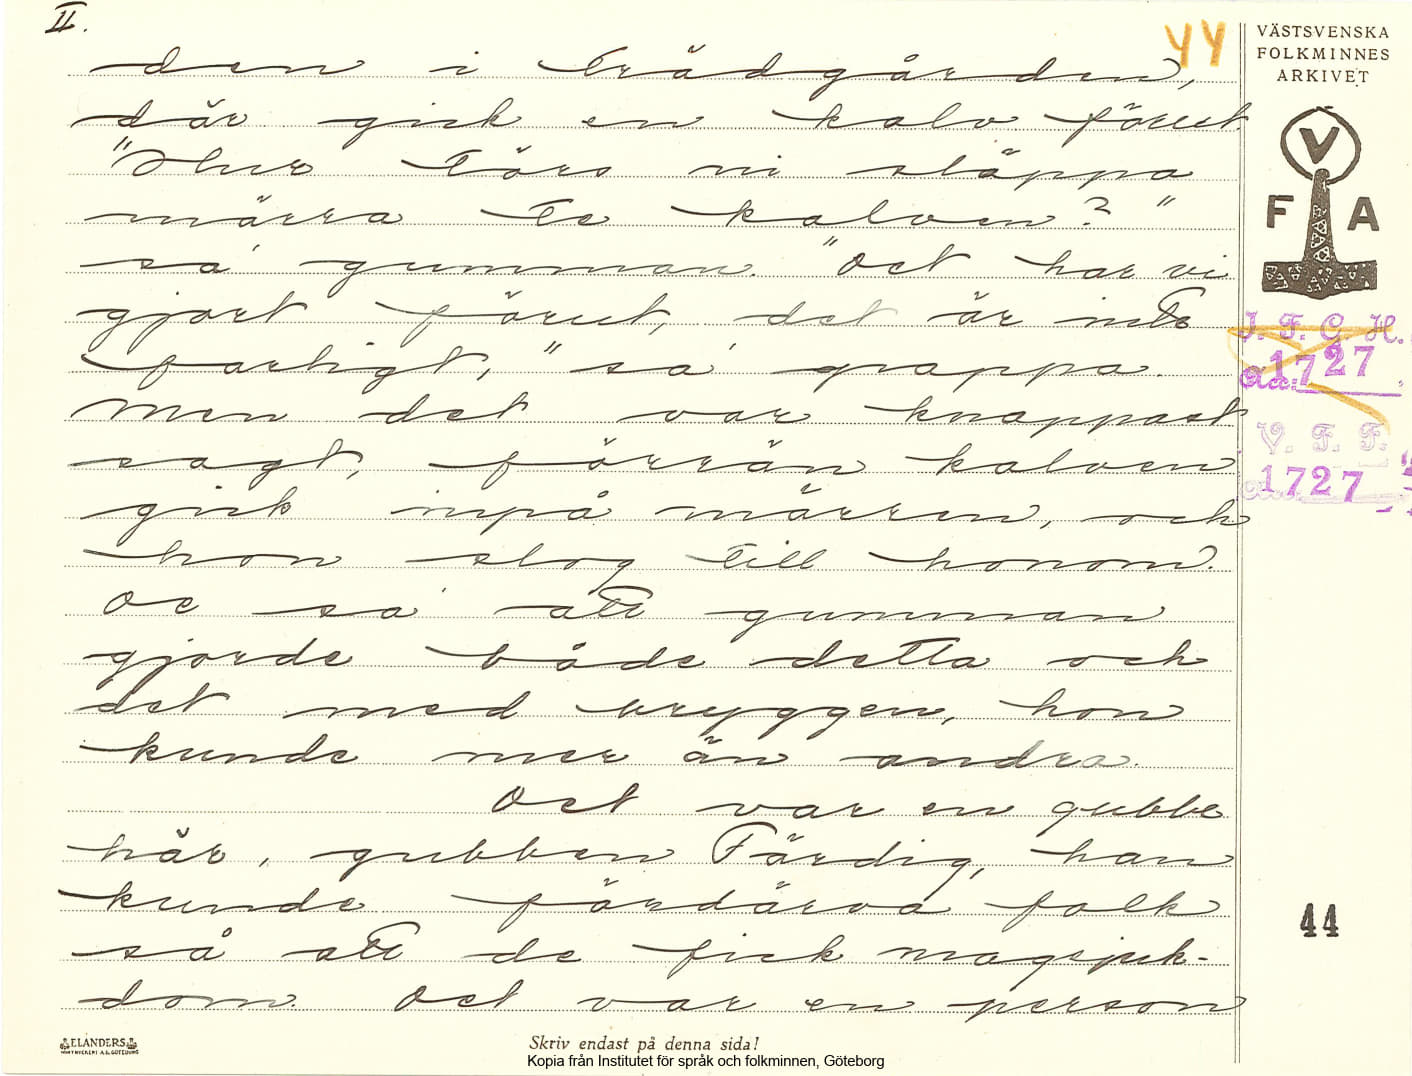 II.
44
VÄSTSVENSKA
FOLKMINNES
ARKIVET
V
F A
den i trädgården,
där gick en kalv förut.
"Hur törs ni släppa
märra te kalven?"
sa' gumman. "Det har vi
gjort förut, det är inte
farligt," sa' pappa.
Men det var knappast
sagt, förrän kalven
gick inpå märren, och
hon slog till honom.
De sa' att gumman
gjorde både detta och
det med uryggen, hon
kunde mer än andra.
Det var en gubbe
här, gubben Färdig, han
kunde fördärva folk
så att de fick magsjuk-
dom. Det var en person
I. F. G. H.
acc: 1727
V. F. F.
1727
44
ELANDERS
Skriv endast på denna sida!
Kopia från Institutet för språk och folkminnen, Göteborg